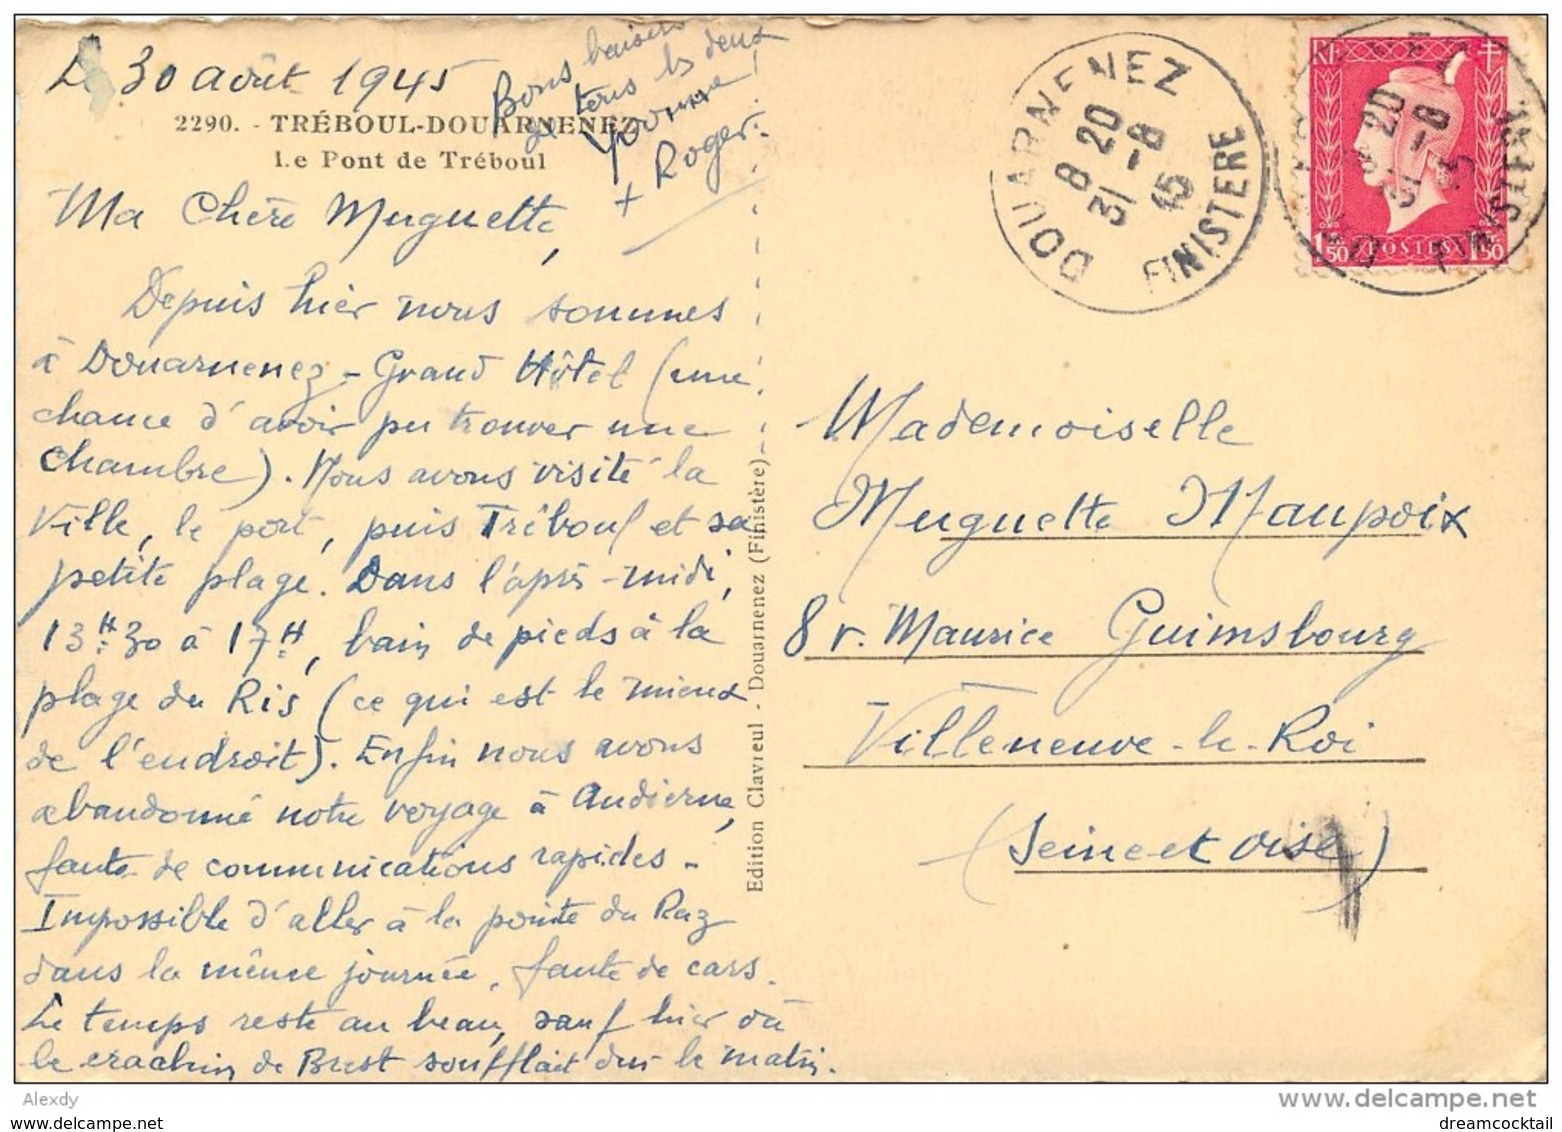 Le 30 août 1945
Bons baisers
de tous les deux
Yvonne
+ Roger.
2290. - TRÉBOUL-DOUARNENEZ
Le Pont de Tréboul
Ma Chère Muguette,
Depuis hier nous sommes
à Douarnenez - Grand Hôtel (une
chance d'avoir pu trouver une
chambre). Nous avons visité la
Ville, le port, puis Tréboul et sa
petite plage. Dans l'après-midi,
13H30 à 17H, bain de pieds à la
plage du Ris (ce qui est le mieux
de l'endroit). Enfin nous avons
abandonné notre voyage à Audierne,
faute de communications rapides -
Impossible d'aller à la pointe du Raz
dans la même journée, faute de cars.
Le temps reste au beau, sauf hier où
le crachin de Brest soufflait dur le matin.
Edition Clavreul - Douarnenez (Finistère)
DOUARNENEZ
8 20
31 -8
45
FINISTERE
RF
1,50 POSTES 1,50
8 20
31 -8
FINISTERE
Mademoiselle
Muguette Maupoix
8 r. Maurice Guimsbourg
Villeneuve-le-Roi
(Seine et Oise)
Alexdy
www.delcampe.net
dreamcocktail